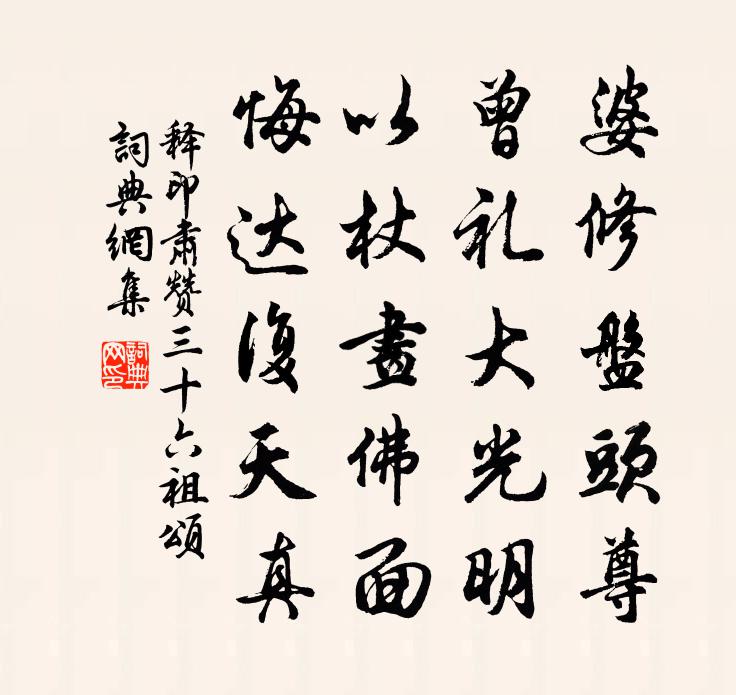 婆修盤頭尊
曾礼大光明
以杖畫佛面
悔达復天真
释印肃赞三十六祖頌
詞典網集
詞典網印